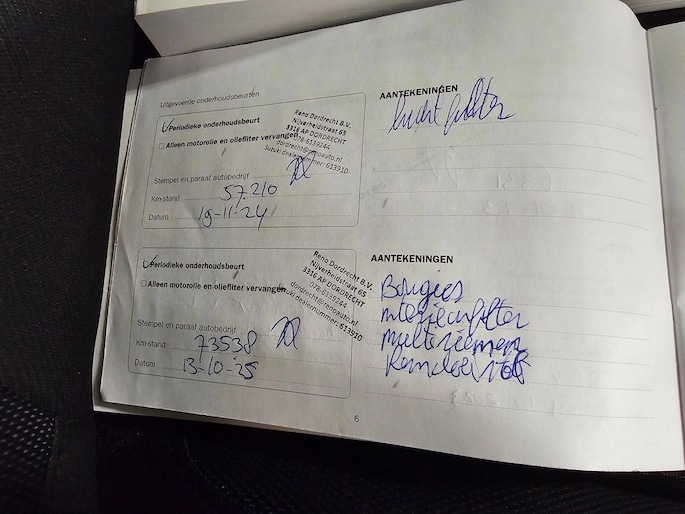 Uitgevoerde onderhoudsbeurten
Periodieke onderhoudsbeurt
Alleen motorolie en oliefilter vervangen
Reno Dordrecht B.V.
Nijverheidstraat 65
3316 AP DORDRECHT
078-6139244
dordrecht@renoauto.nl
Suzuki dealernummer: 613910
Stempel en paraaf autobedrijf
Km-stand 57.210
Datum 19-11-24
AANTEKENINGEN
lucht filter
Periodieke onderhoudsbeurt
Alleen motorolie en oliefilter vervangen
Reno Dordrecht B.V.
Nijverheidstraat 65
3316 AP DORDRECHT
078-6139244
dordrecht@renoauto.nl
Suzuki dealernummer: 613910
Stempel en paraaf autobedrijf
Km-stand 73538
Datum 13-10-25
AANTEKENINGEN
Bougies
interieurfilter
multiriemen
Remvloeistof
6